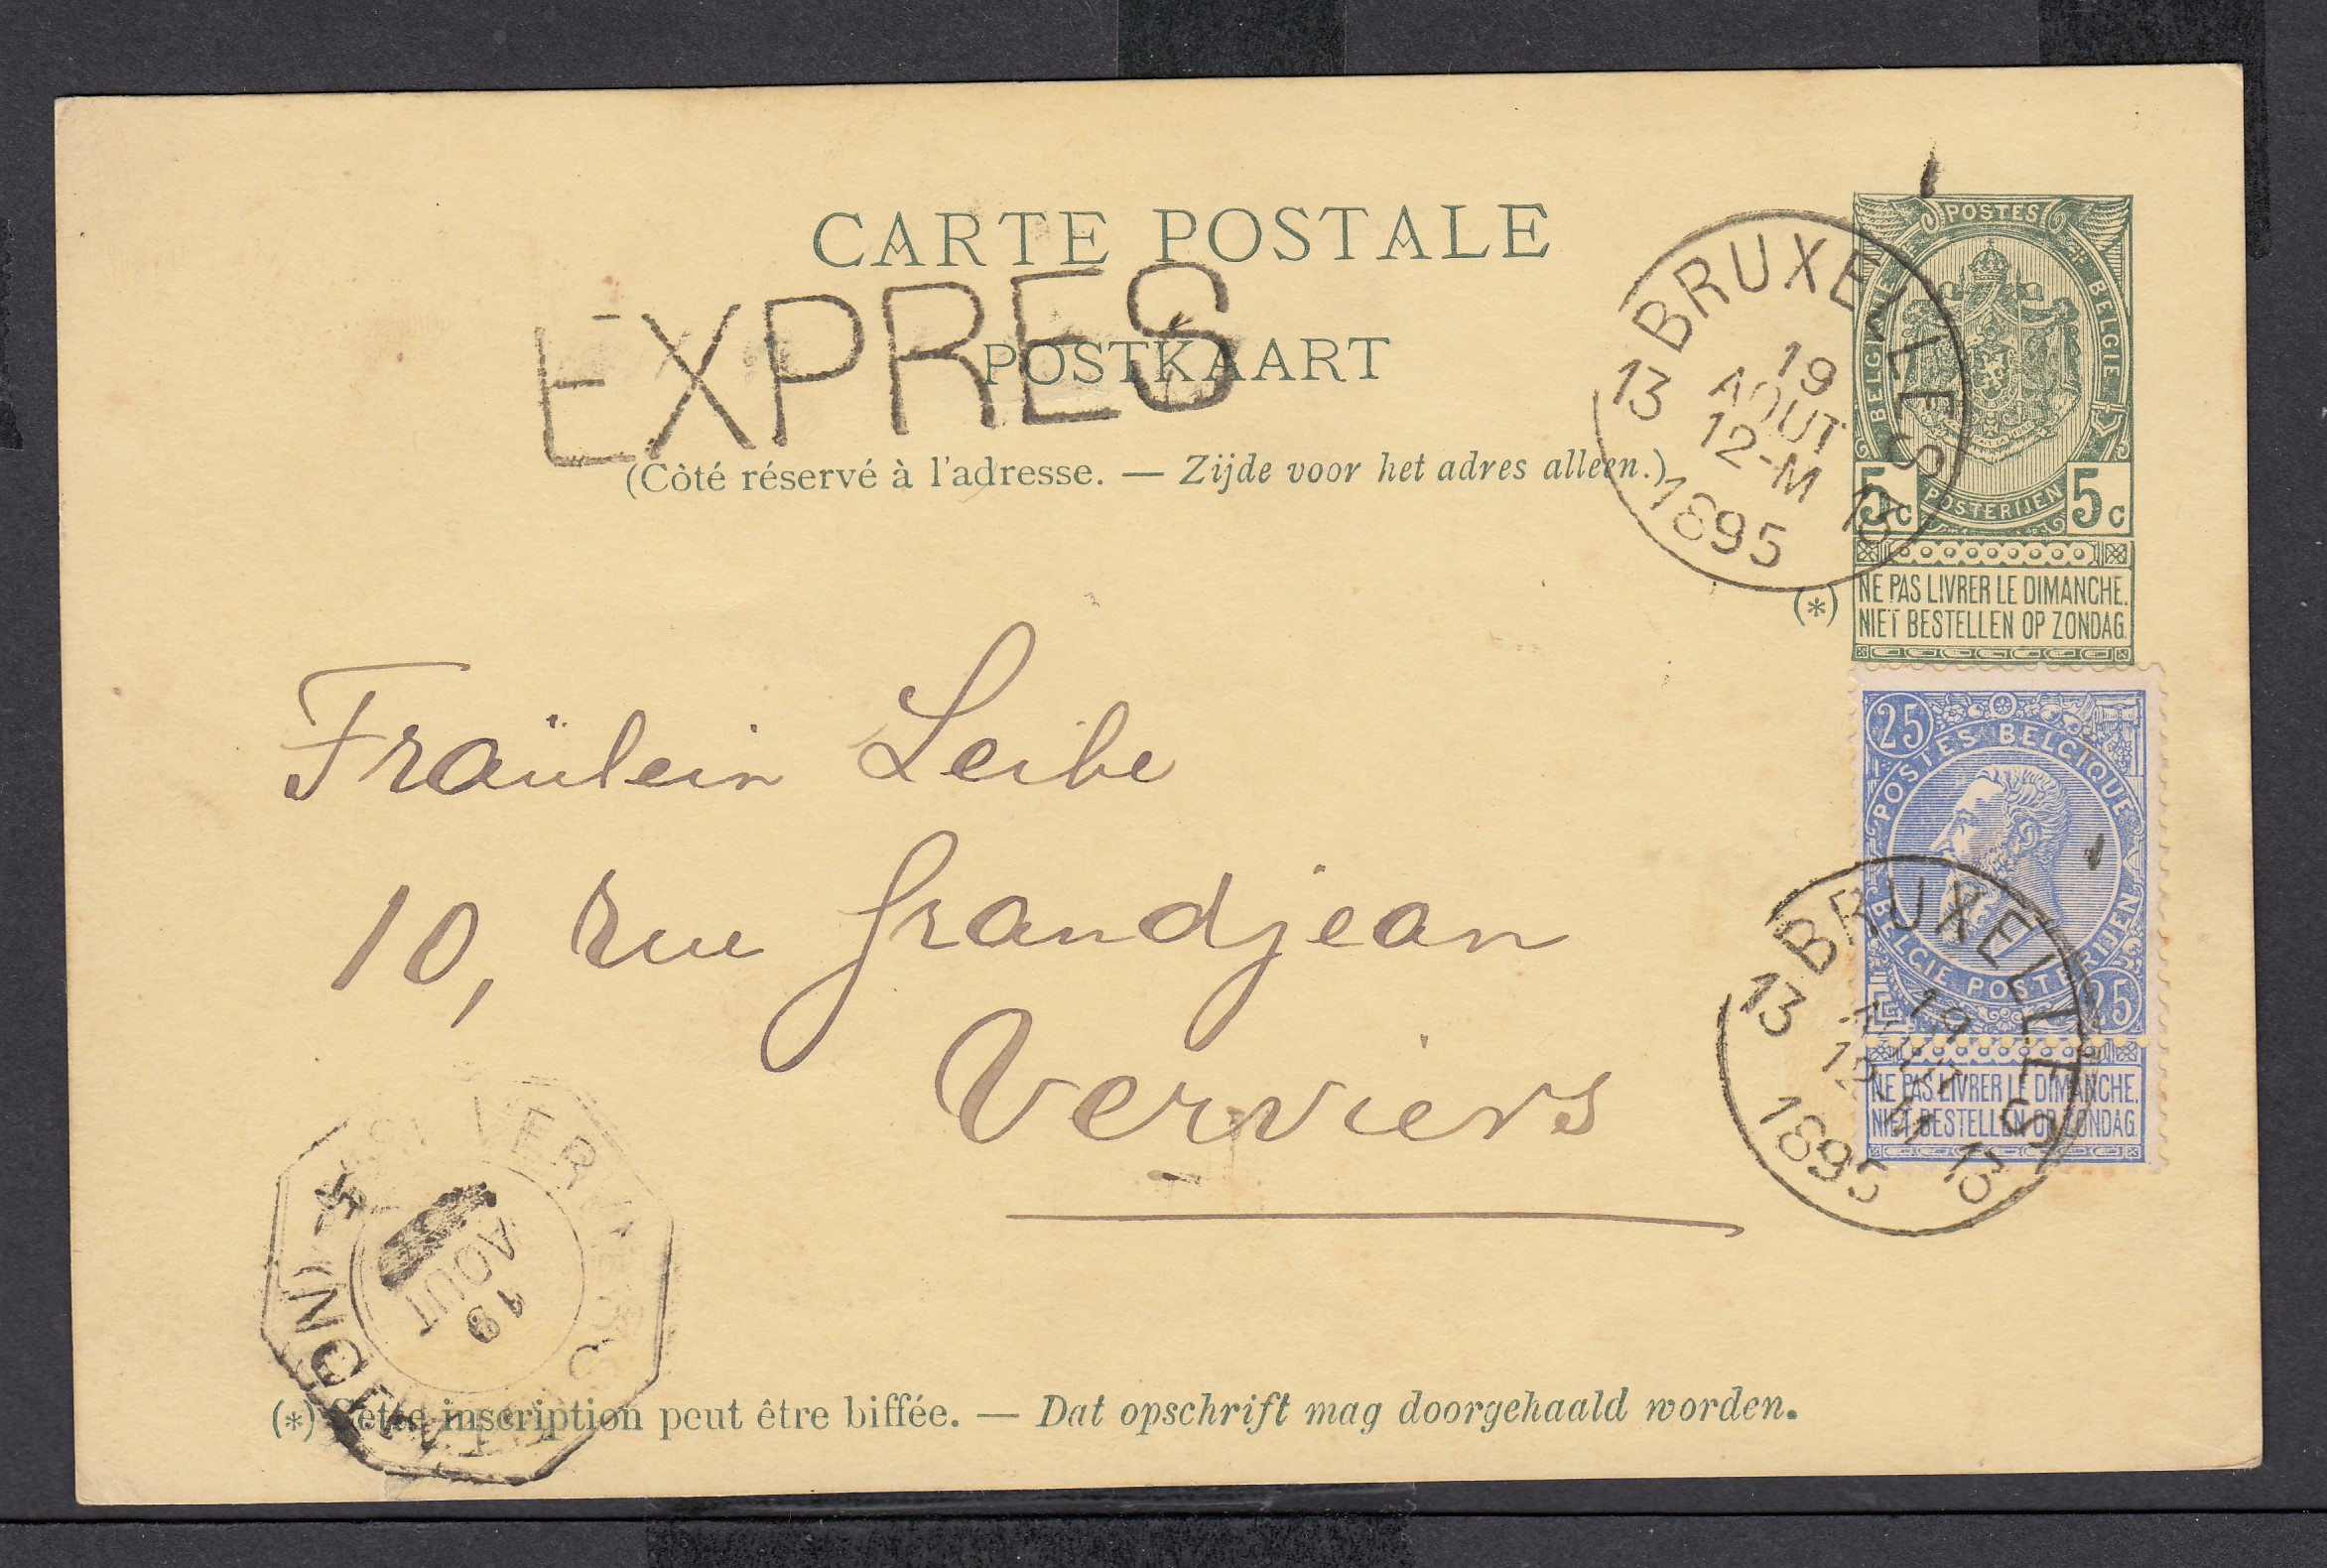 CARTE POSTALE
EXPRES
POSTKAART
(Côté réservé à l'adresse. — Zijde voor het adres alleen.)
BRUXELLES
13 19 AOUT 12-M 13
1895
POSTES
BELGIQUE BELGIE
POSTERIJEN
5c 5c
NE PAS LIVRER LE DIMANCHE.
NIET BESTELLEN OP ZONDAG.
(*)
Fraülein Leibe
10, rue Grandjean
Verviers
25
POSTES BELGIQUE
BELGIE POSTERIJEN
25
NE PAS LIVRER LE DIMANCHE.
NIET BESTELLEN OP ZONDAG.
BRUXELLES
13 19 AOUT 12-M 13
1895
VERVIERS
19
AOUT
(*) Cette inscription peut être biffée. — Dat opschrift mag doorgehaald worden.